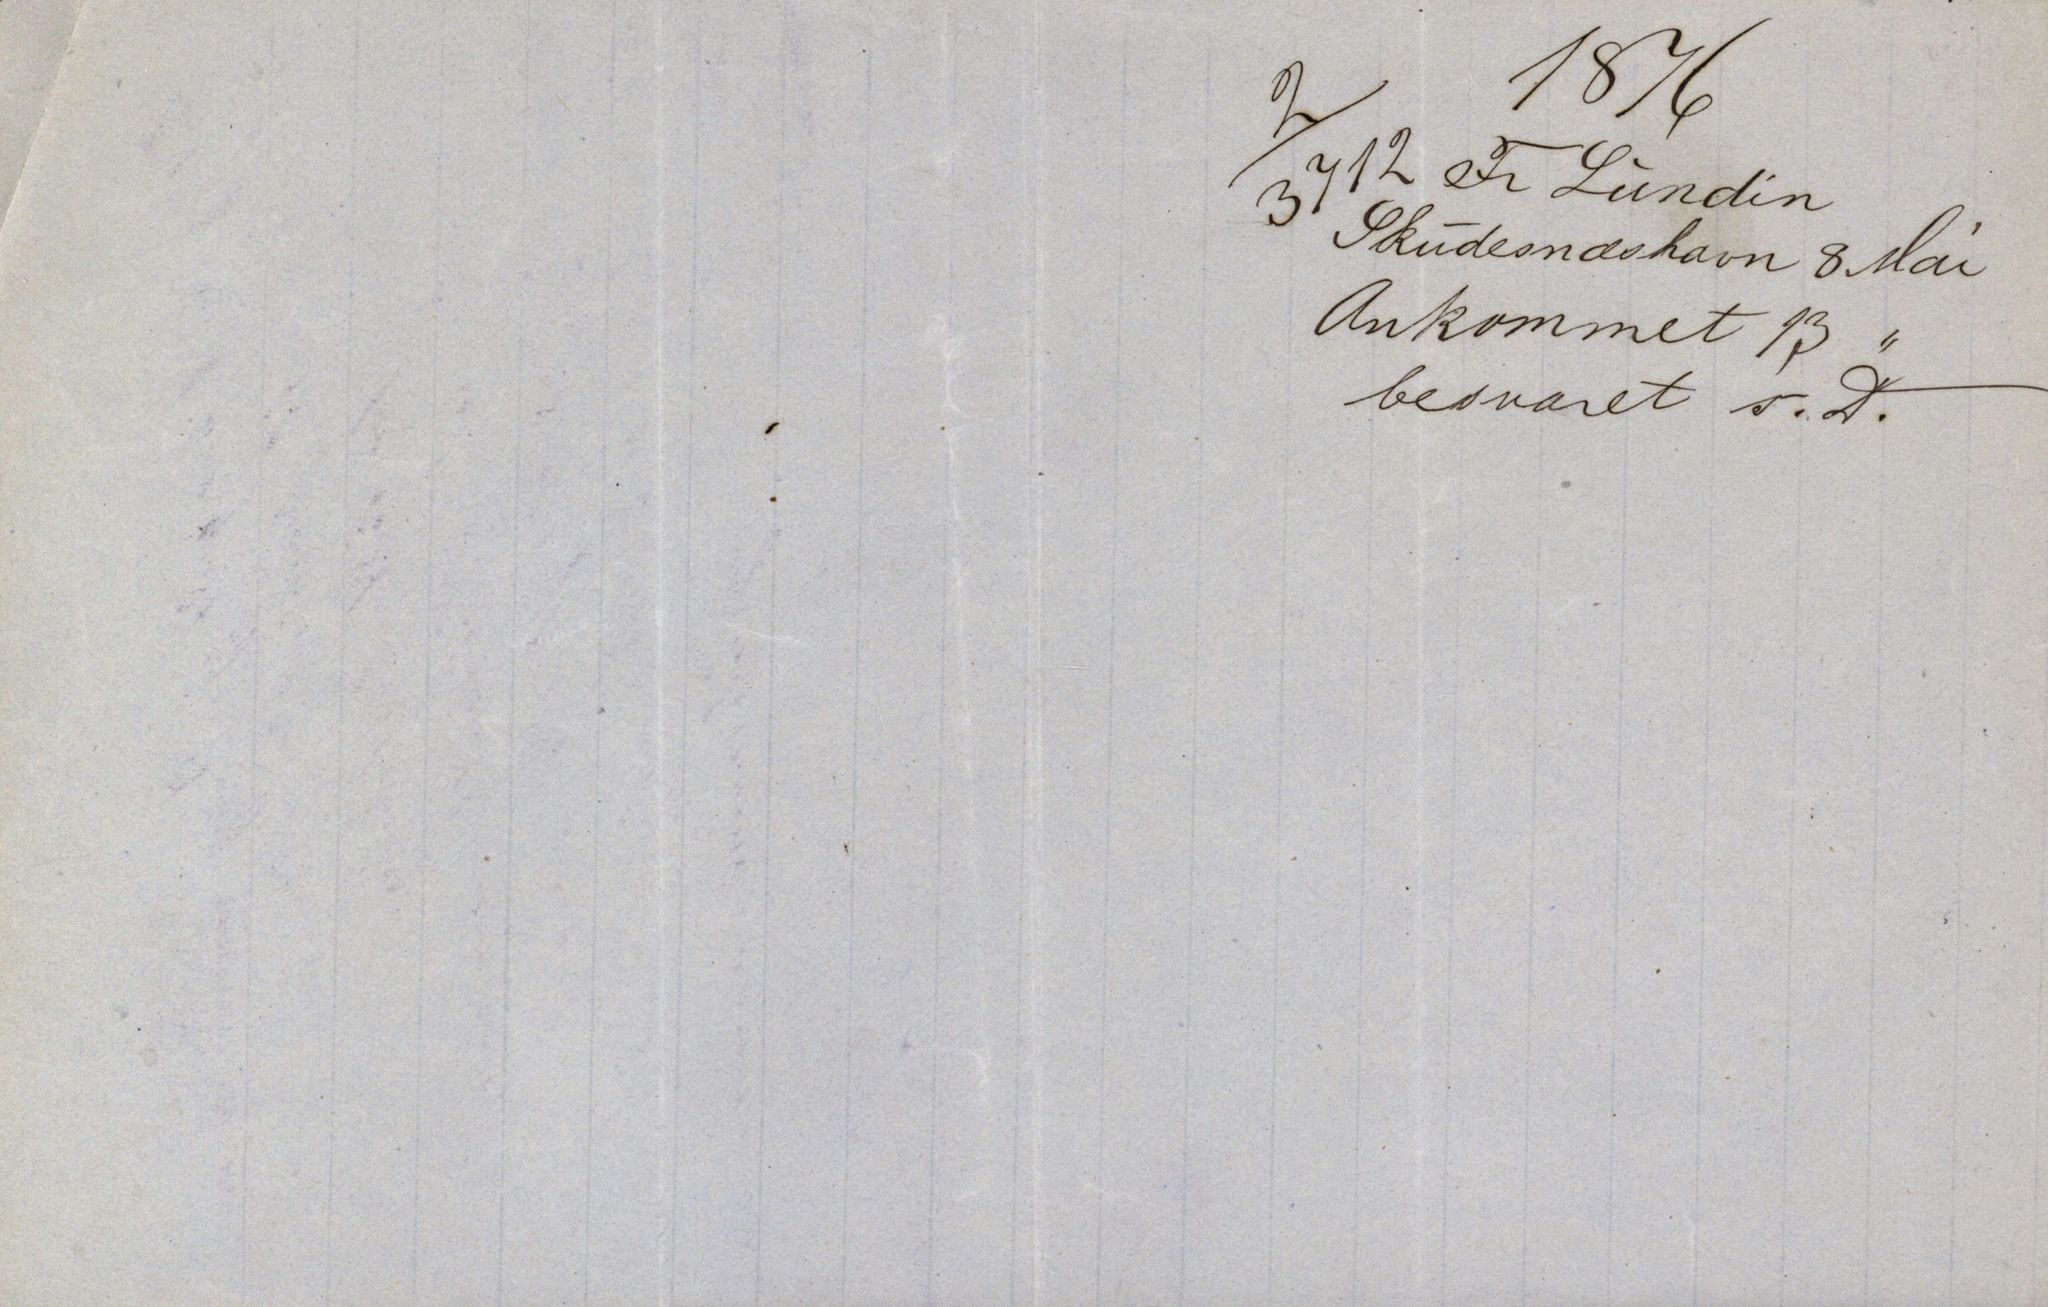 1876
2/3 712 Fr Lundin
Skudesnæshavn 8 Mai
Ankommet 13 "
besvaret s. D.